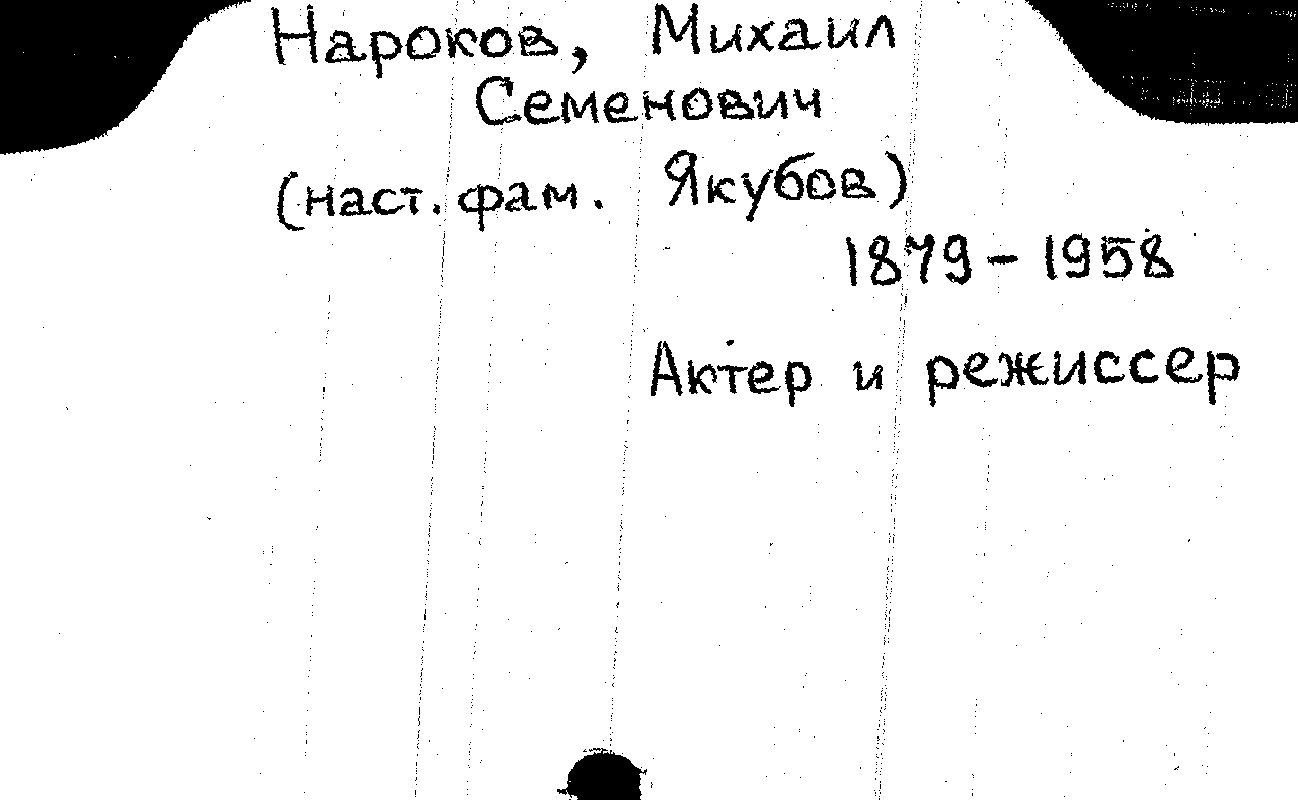 Нароков, Михаил
Семенович
(наст. фам. Якубов)
1879 - 1958
Актер и режиссер